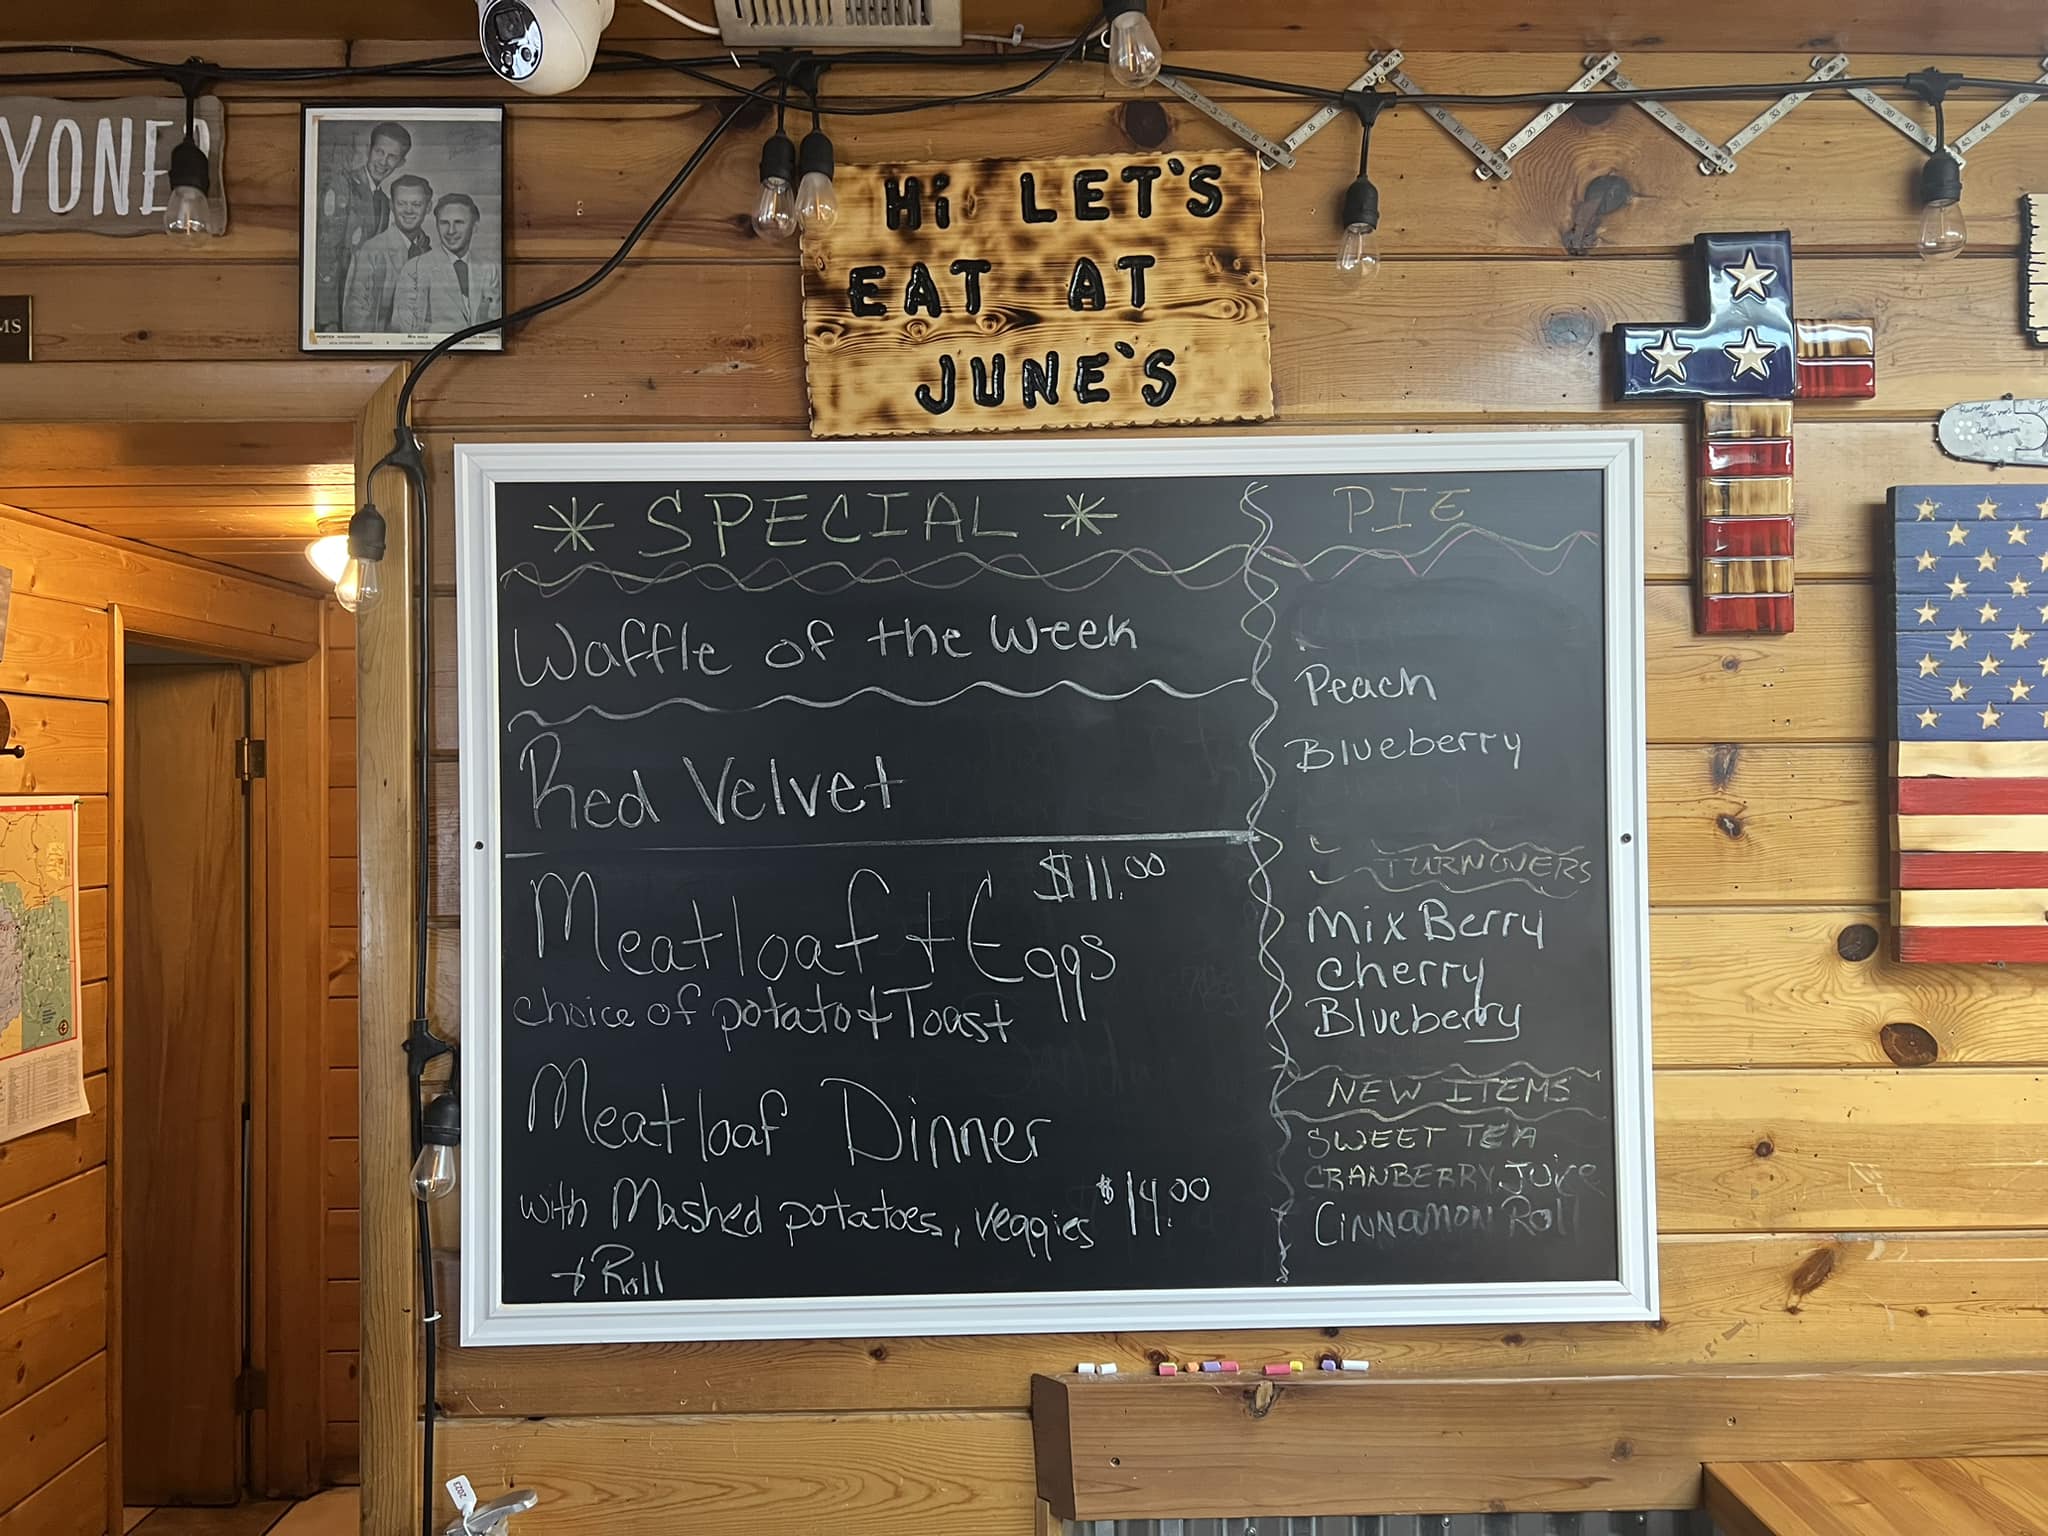 YONE
MS
Hi LET'S
EAT AT
JUNE'S
* SPECIAL *
Waffle of the Week
Red Velvet
Meatloaf + Eggs $11.00
choice of potato + Toast
Meatloaf Dinner
with Mashed potatoes, veggies $14.00
+ Roll
PIE
Peach
Blueberry
TURNOVERS
Mix Berry
Cherry
Blueberry
NEW ITEMS
SWEET TEA
CRANBERRY JUICE
CINNAMON ROLL
2023